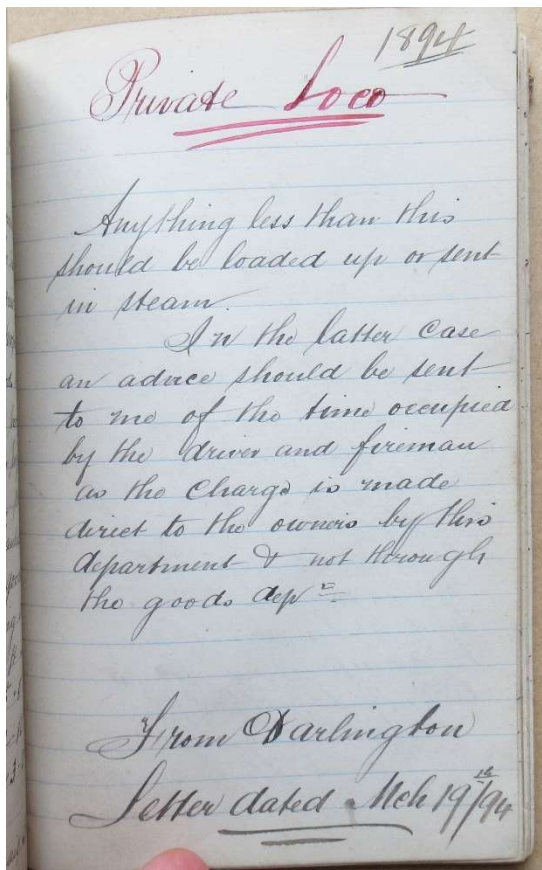 1894
Private Loco
Anything less than this
should be loaded up or sent
in steam.
In the latter case
an advice should be sent
to me of the time occupied
by the driver and fireman
as the charge is made
direct to the owners by this
department & not through
the goods dept
From Darlington
Letter dated Mch 19th/94